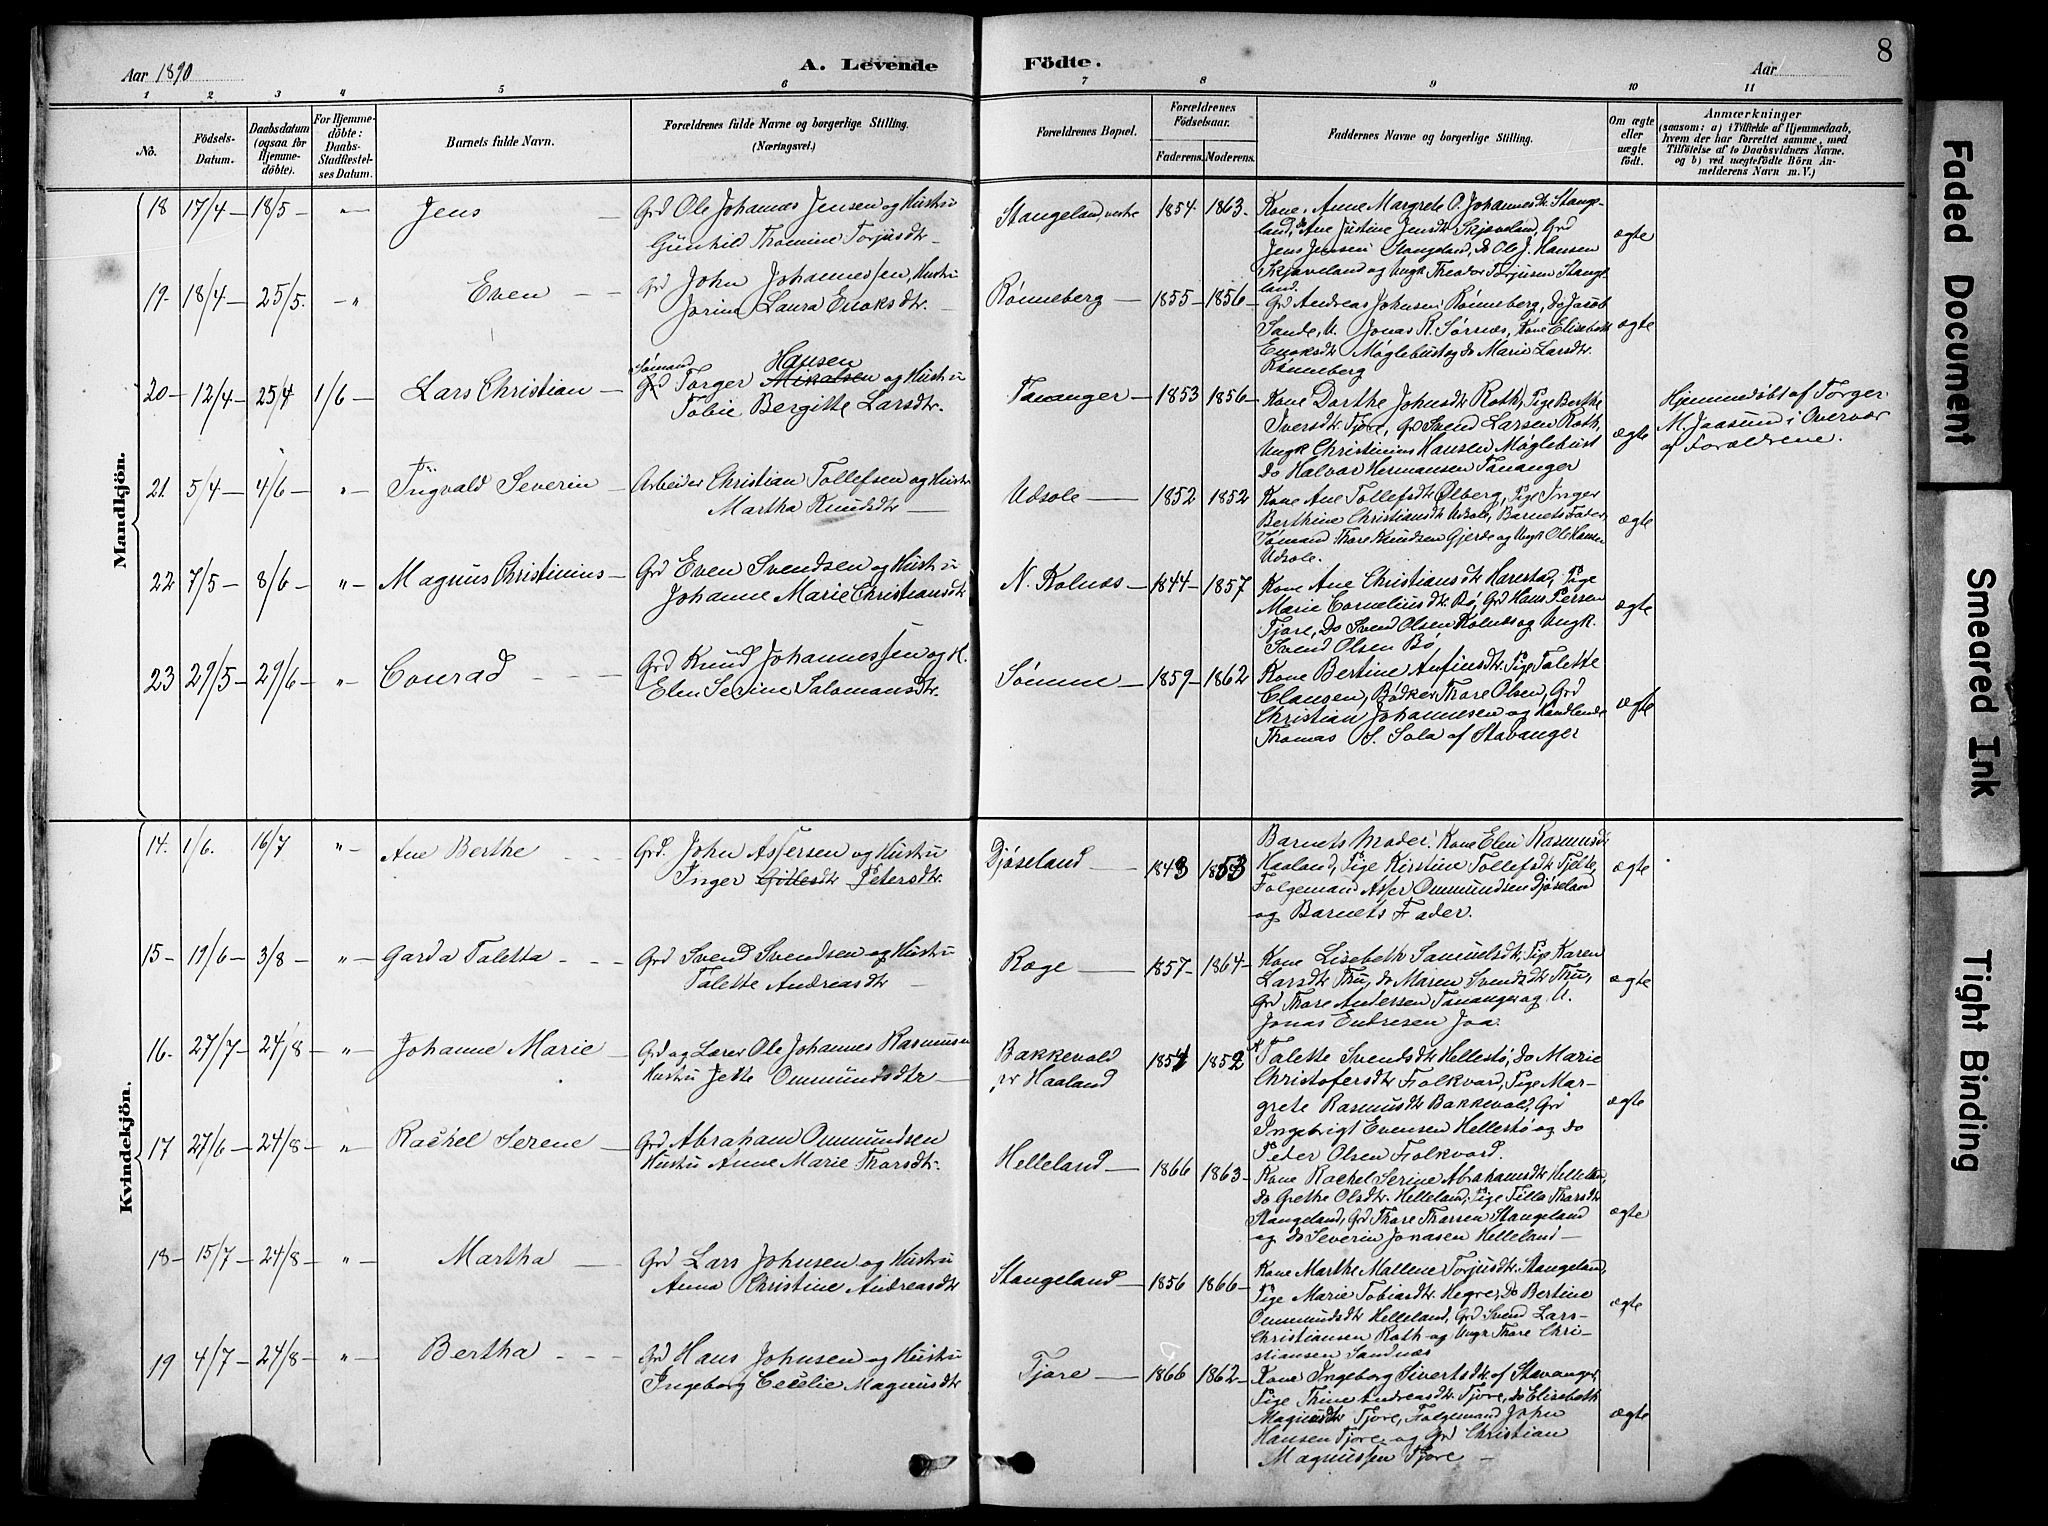 Aar 1890
A. Levende
Födte.
Aar
8
1 2 3 4 5 6 7 8 9 10 11
No.
Födsels-
Datum.
Daabsdatum
(ogsaa for
Hjemme-
döbte).
For Hjemme-
döbte:
Daabs-
Stadfæstel-
ses Datum.
Barnets fulde Navn.
Forældrenes fulde Navne og borgerlige Stilling.
(Næringsvei.)
Forældrenes Bopæl.
Forældrenes
Födselsaar.
Faderens. Moderens.
Faddernes Navne og borgerlige Stilling.
Om ægte
eller
uægte
födt.
Anmærkninger
(saasom: a) i Tilfælde af Hjemmedaab,
hvem der har forrettet samme, med
Tilföielse af to Daabsvidners Navne.
og b) ved uægtefödte Börn An-
melderens Navn m. V.)
Mandkjön.
18 17/4 — 18/5 - " - Jens —
Grd Ole Johannes Jensen og Hustru
Gunhild Thomine Torjusdtr —
Stangeland vestre 1854 - 1863 -
Kone Anne Margrete O. Johannesdtr Stange-
land, do Ane Justine Jensdtr Skjæveland, Grd
Jens Jensen Stangeland, do Ole J. Hansen
Skjæveland og Ungk Theodor Torjusen Stange-
land.
ægte
19 - 18/4 — 25/5. - " Even —
Grd John Johannessen, Hustru
Jorine Laura Enoksdtr. —
Rønneberg — 1855 - 1856 -
Grd Andreas Johnsen Rønneberg, do Jacob
Sande, U. Jonas R. Sørnæs, Kone Elisabeth
Enoksdtr Møglebust og do Marie Larsdtr.
Rønneberg
ægte
20 - 12/4 - 25/4 1/6 - Lars Christian —
Sømand Hansen
Grd Torger Mikalsen og Hustru
Tobie Bergitte Larsdtr.
Tananger — 1853 1856 -
Kone Dorthe Johnsdtr Roth, Pige Berthe
Iversdtr Tjøre, Grd Svend Larsen Roth,
Ungk Christinius Hansen Møglebust
do Halvar Hermansen Tananger
ægte
Hjemmedøbt af Torger
M. Jaasund i Overvær
af Forældrene.
21. 5/4 — 4/6 - " - Ingvald Severin —
Arbeider Christian Tollefsen og Hustru
Martha Knudsdtr —
Udsole — 1852 1852
Kone Ane Tollefsdtr Ølberg, Pige Inger
Berthine Christiansdtr Udsole, Barnets Fader,
Sømand Thore Knudsen Gjerde og Ungk Ole Hansen
Udsole.
ægte
22 7/5 - 8/6 - " - Magnus Christinius -
Grd Even Svendsen og Hustru
Johanne Marie Christiansdtr
N. Kolnæs - 1844 - 1857
Kone Ane Christiansdtr Harestad, Pige
Marie Corneliusdtr. Bø, Grd Hans Persen
Tjøre, Do Svend Olsen Kolnæs og Ungk.
Svend Olsen Bø
ægte
23 29/5 - 29/6 - " Conrad — —
Grd Knud Johannessen og H.
Elen Serine Salomonsdtr.
Sømme — 1859 - 1862
Kone Bertine Anfinsdtr. Pige Talette
Clausen, Bødker Thore Olsen, Grd
Christian Johannesen og Handlende
Thomas S. Sola af Stavanger
ægte
Kvindekjön.
14. 1/6. 16/7 " - Ane Berthe —
Grd. John Assersen og Hustru
Inger Gittesdtr Petersdtr.
Djøseland — 1843 1853
Barnets Moder. Kone Elen Rasmusdtr
Haaland, Pige Kirstine Tollefsdtr Tjelte,
Folgemand Asser Ommundsen Djøseland
og Barnets Fader.
ægte
15 - 19/6 - 3/8 - " - Garda Taletta —
Grd Svend Svendsen og Hustru
Talette Andreasdtr —
Ræge — 1857 - 1864 -
Kone Lisebeth Samuelsdtr, Pige Karen
Larsdtr Thu, do Maren Svendsdtr Thu,
Grd Thore Andersen Tananger og U.
Jonas Endresen Joa.
ægte
16 - 27/7 - 24/8 - " - Johanne Marie —
Grd og Lærer Ole Johannes Rasmusen
Hustru Jette Ommundsdtr —
Bakkevold
pr Haaland 1854 1852
K Talette Svendsdtr Hellestø, do Marie
Christofersdtr Folkvord, Pige Mar-
grete Rasmusdtr Bakkevold, Grd
Ingebrigt Evensen Hellestø og do
Peder Olsen Folkvord.
ægte
17 27/6 - 24/8 - " Rachel Serene —
Grd Abraham Ommundsen
Hustru Anne Marie Thorsdtr.
Helleland — 1866 1863 -
Kone Rachel Serine Abrahamsdtr Helleland,
do Grethe Olsdtr. Helleland, Pige Tilla Thorsdtr
Stangeland, Grd Thore Thorsen Stangeland
og do Severin Jonasen Helleland —
ægte
18 - 15/7 - 24/8 - " Martha —
Grd Lars Johnsen og Hustru
Anna Christine Andreasdtr
Stangeland — 1856 1866 -
Kone Marthe Mallene Torjusdtr. Stangeland,
Pige Marie Tobiasdtr. Hegre, Do Bertine
Ommundsdtr Helleland, Grd Svend Lars-
Christiansen Roth og Ungk Thore Chri-
stiansen Sandnæs
ægte
19 4/7 - 24/8 - " - Bertha —
Grd Hans Johnsen og Hustru
Ingeborg Cecelie Magnusdtr
Tjøre — 1866 1862 -
Kone Ingeborg Sivertsdtr. af Stavanger,
Pige Thine Andreasdtr. Tjøre, do Elisabeth
Magnusdtr Tjøre, Folgemand John
Hansen Tjøre og Grd Christian
Magnussen Tjøre —
ægte
Faded Document
Smeared Ink
Tight Binding